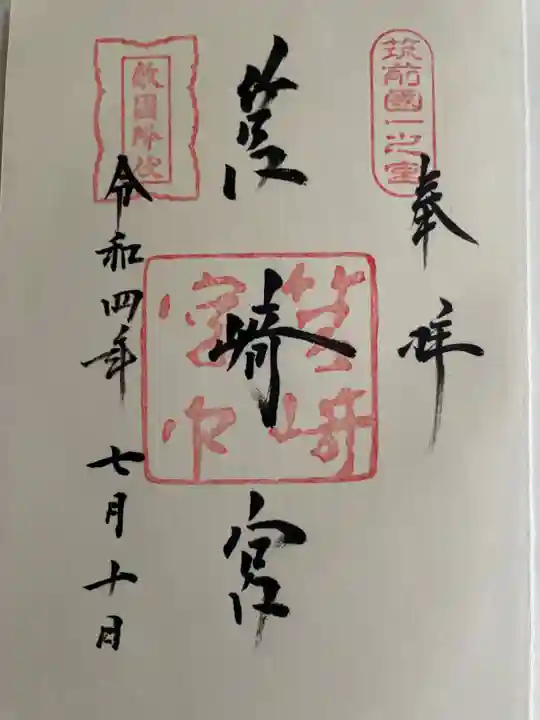 筑前國一之宮
奉拝
筥崎宮
筥崎宮印
敵国降伏
令和四年 七月十日